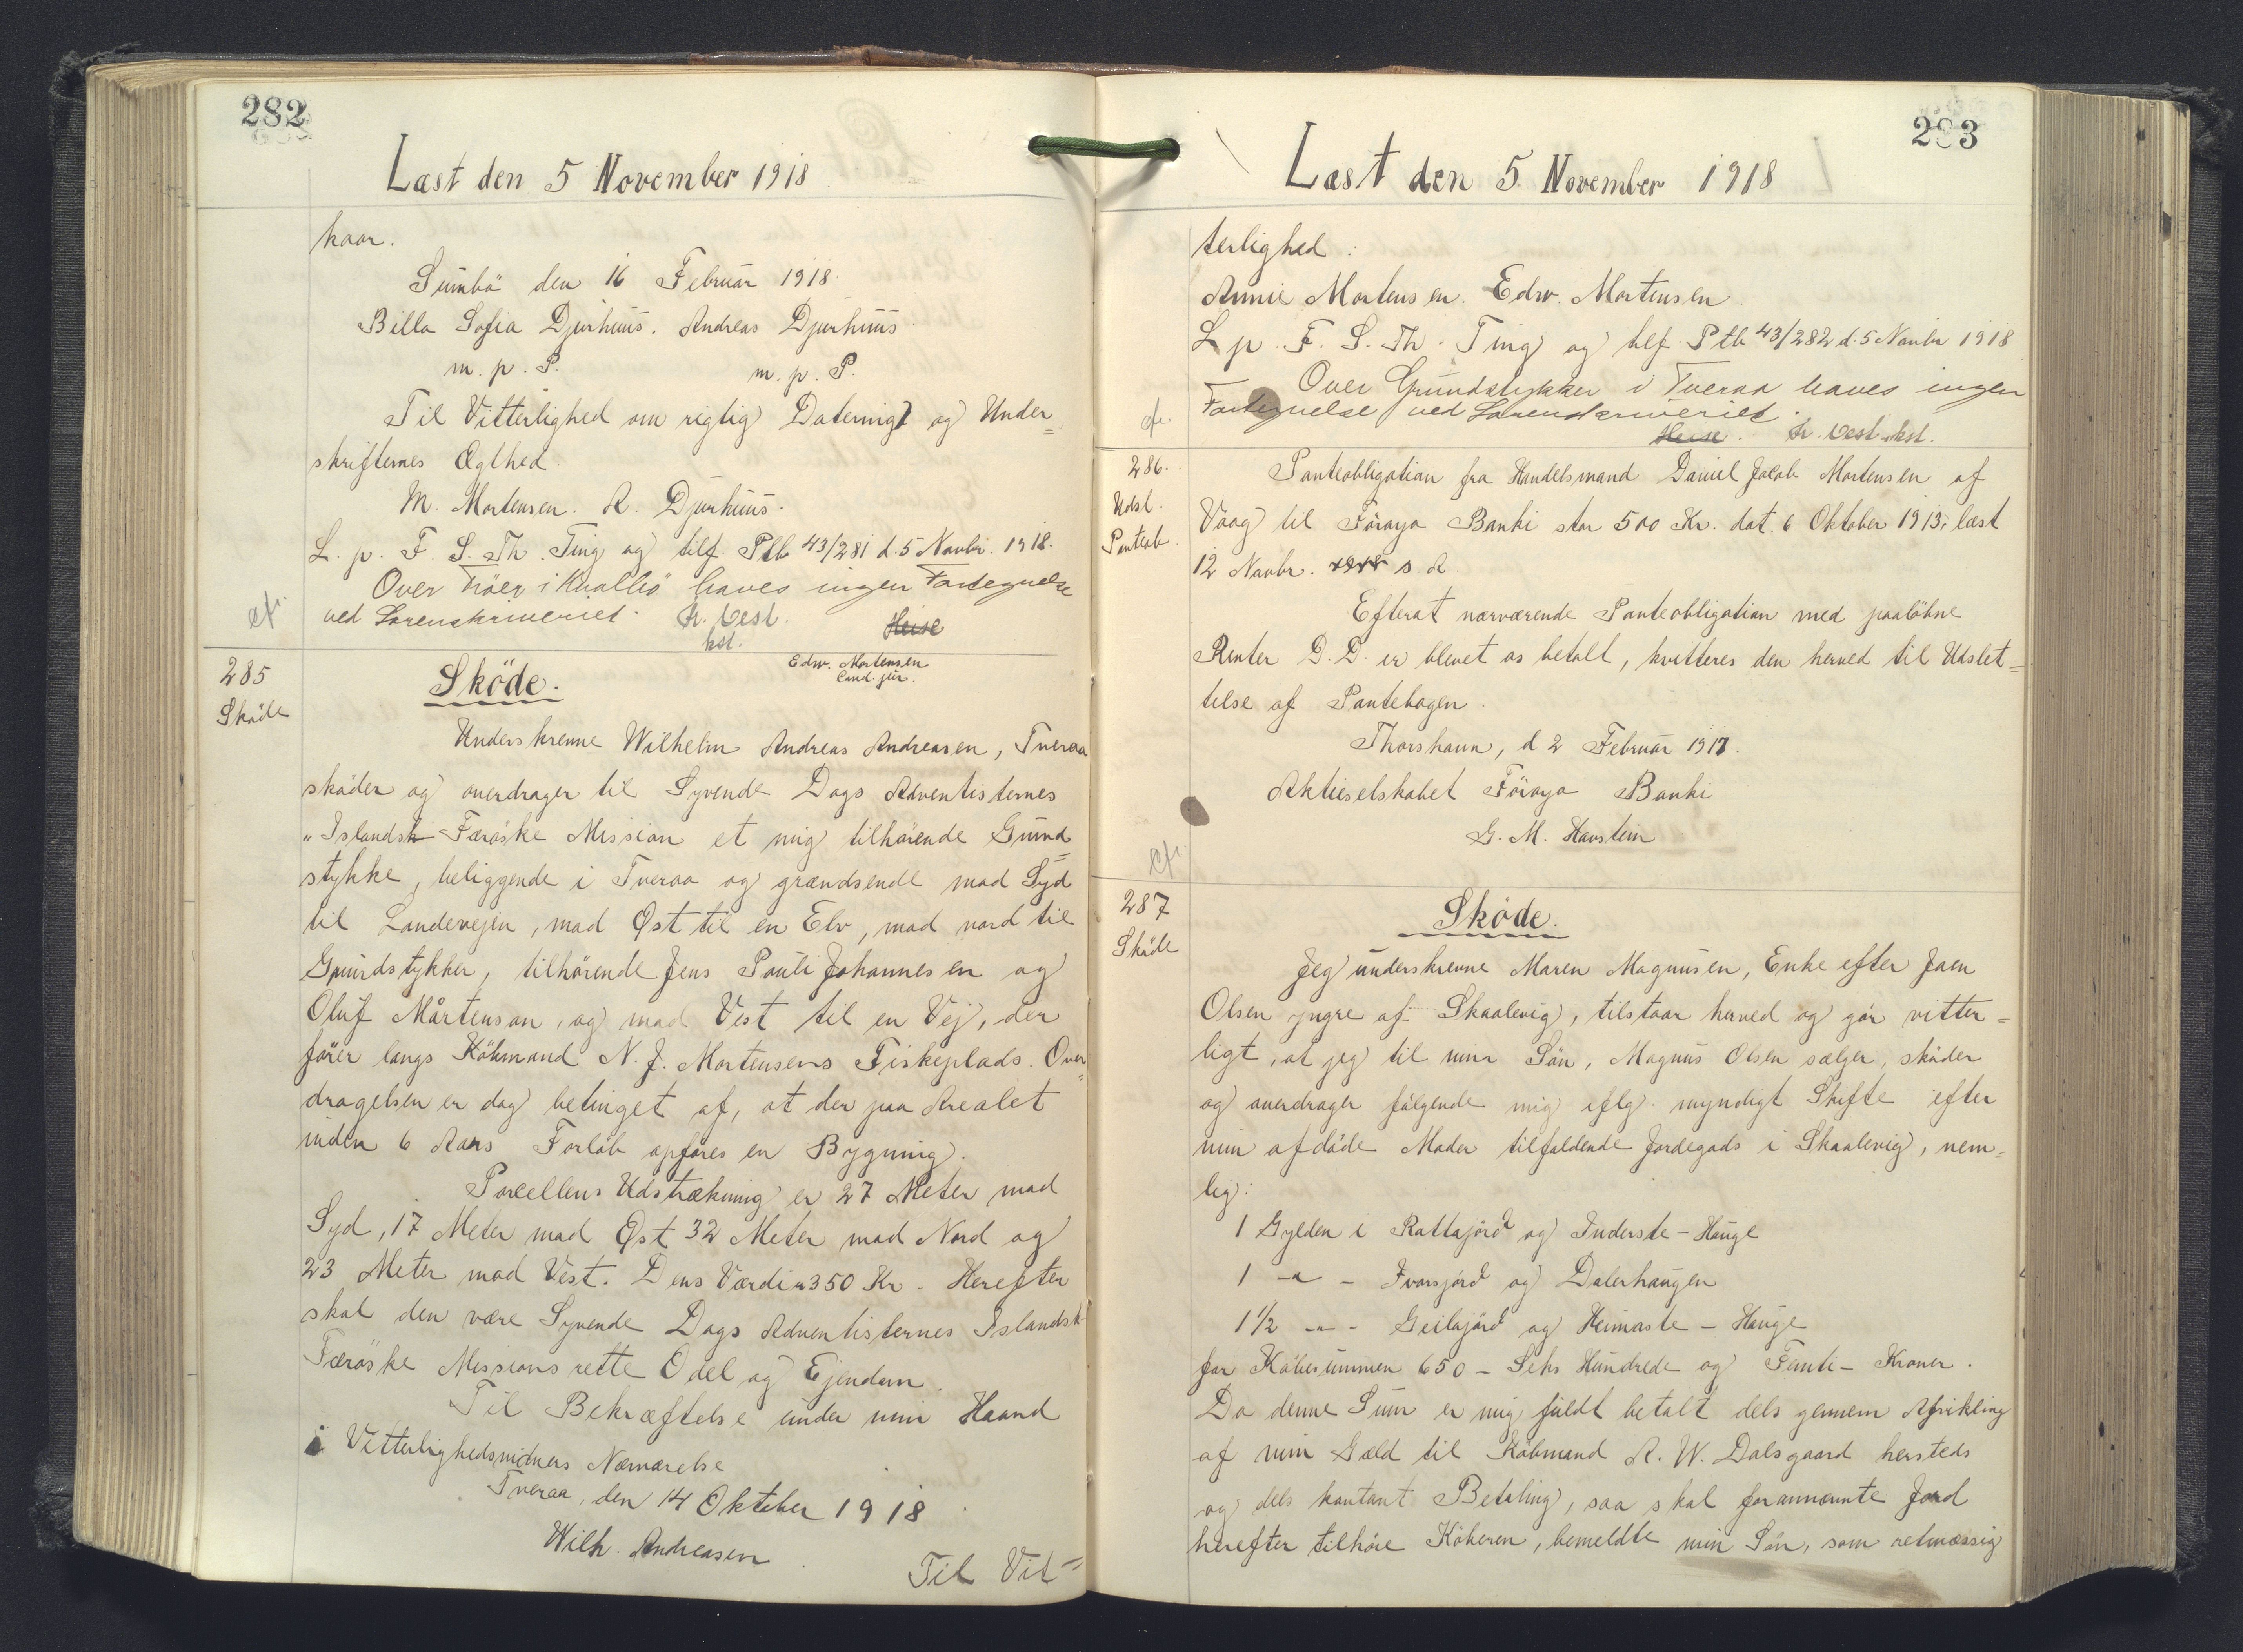 282
Læst den 5 November 1918
kaar.
Sumbö den 16 Februar 1918.
Billa Sofia Djurhuus. Andreas Djurhuus
m. p. P. m. p. P.
Til Vitterlighed om rigtig Datering og Under=
skrifternes Ægthed.
M. Mortensen. A. Djurhuus.
L. p. F. S. Th. Ting og tilf. Ptb 43/281 d. 5 Novbr. 1918.
Over Tröer i Kvalbö haves ingen Fortegnelse
cfr.
ved Sorenskriveriet. Fr. Vest.
kst.
Heise
285
Sköde
Sköde.
Edw. Mortensen
Cand. jur.
Underskrevne Wilhelm Andreas Andreasen, Tveraa
sköder og overdrager til Syvende Dags Adventisternes
"Islandsk Færöske Mission et mig tilhörende Grund=
stykke, beliggende i Tveraa og grændsende mod Syd
til Landevejen, mod Øst til en Elv, mod nord til
Grundstykker, tilhörende Jens Pauli Johannesen og
Oluf Mårtenson, og mod Vest til en Vej, der
förer langs Köbmand N. J. Mortensens Fiskeplads. Over=
dragelsen er dog betinget af, at der paa Arealet
inden 6 Aars Forløb opföres en Bygning.
Parcellens Udstrækning er 27 Meter mod
Syd, 17 Meter mod Øst 32 Meter mod Nord og
23 Meter mod Vest. Dens Værdi er 350 Kr. Herefter
skal den være Syvende Dags Adventisternes Islandsk
Færöske Missions rette Odel og Ejendom.
Til Bekræftelse under min Haand
i Vitterlighedsvidners Nærværelse
Tveraa, den 14 Oktober 1918
Wilh. Andreasen
Til Vit=
283
Læst den 5 November 1918
terlighed:
Annie Mortensen. Edw. Mortensen
L. p. F. S. Th. Ting og tilf. Ptb 43/282 d. 5 Novbr 1918
Over Grundstykker i Tveraa haves ingen
cfr.
Fortegnelse ved Sorenskriveriet.
Heise. Fr. Vest kst.
286.
Udsl.
Panteob
Panteobligation fra Handelsmand Daniel Jacob Mortensen af
Vaag til Föroya Banki stor 500 Kr. dat. 6 Oktober 1913, læst
12 Novbr. s. A.
Efterat nærværende Panteobligation med paalöbne
Renter D. D. er blevet os betalt, kvitteres den herved til Udslet=
telse af Pantebogen.
Thorshavn, d 2 Februar 1917.
Aktieselskabet Föroya Banki
G. M. Havstein
cfr.
287
Sköde
Sköde.
Jeg underskrevne Maren Magnusen, Enke efter Joen
Olsen yngre af Skaalevig, tilstaar herved og gör vitter=
ligt, at jeg til min Sön, Magnus Olsen sælger, sköder
og overdrager fölgende mig iflg. myndigt Skifte efter
min afdöde Moder tilfaldende Jordegods i Skaalevig, nem=
lig:
1 Gylden i Rattajörd og Inderste-Hauge
1 -"- Ivarsjörd og Dalerhaugen
1 1/2 -"- Geilajörd og Heimaste-Hauge
for Köbesummen 650 - Seks Hundrede og Femti - Kroner.
Da denne Sum er mig fuldt betalt dels gennem Afvikling
af min Gæld til Köbmand A. W. Dalsgaard hersteds
og dels kontant Betaling, saa skal forannævnte Jord
herefter tilhöre Köberen, bemeldte min Sön, som retmæssig